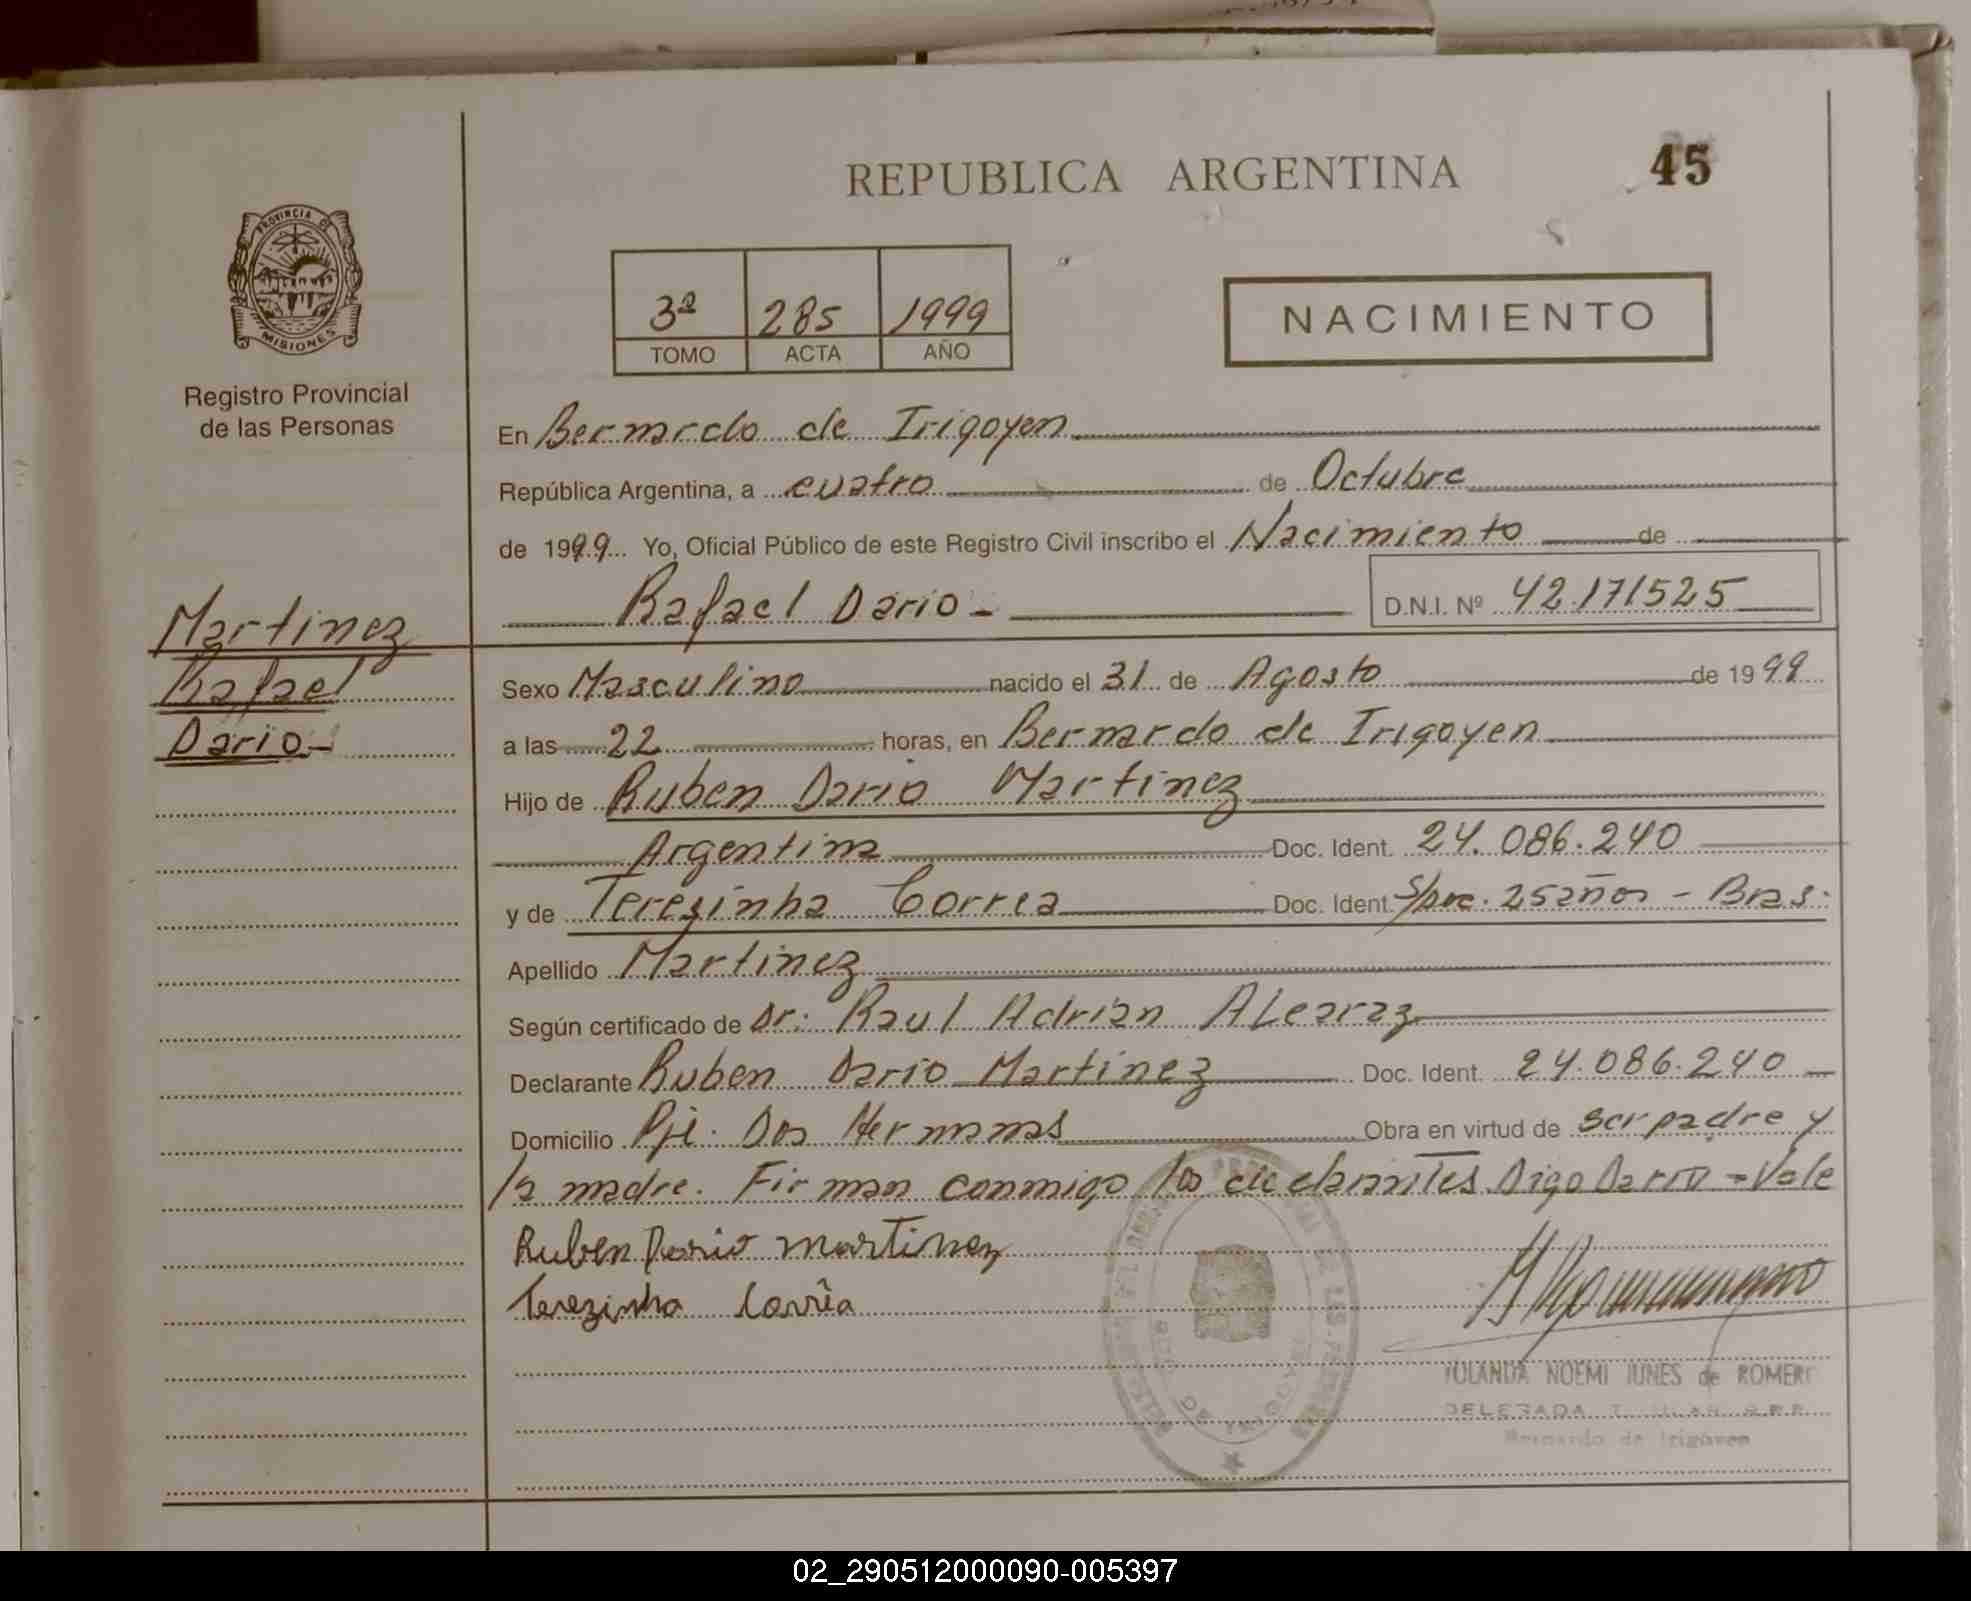 REPUBLICA ARGENTINA
45
PROVINCIA DE
MISIONES
Registro Provincial
de las Personas
3ª 285 1999
TOMO ACTA AÑO
NACIMIENTO
En Bernardo de Irigoyen
República Argentina, a cuatro de Octubre
de 1999 Yo, Oficial Público de este Registro Civil inscribo el Nacimiento de
Rafael Dario - D.N.I. Nº 42.171525
Martinez
Rafael
Dario -
Sexo Masculino nacido el 31 de Agosto de 1999
a las 22 horas, en Bernardo de Irigoyen
Hijo de Ruben Dario Martinez
Argentina Doc. Ident. 24.086.240
y de Teresinha Correa Doc. Ident. S/poc. 25 años - Bras.
Apellido Martinez
Según certificado de Dr: Raul Adrian Alcaraz
Declarante Ruben Dario Martinez Doc. Ident. 24.086.240
Domicilio Pje. Dos Hermanas Obra en virtud de ser padre y
la madre. Firman conmigo los declarantes Digo Dario - Vale
Ruben Dario Martinez
Terezinha Corrêa
YOLANDA NOEMI JUNES de ROMERO
DELEGADA
Bernardo de Irigoyen
02_290512000090-005397